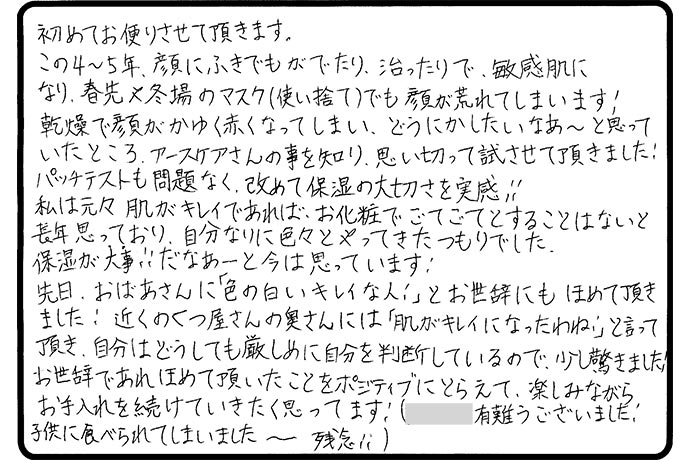 初めてお便りさせて頂きます。
この4〜5年、顔にふきでもがでたり、治ったりで、敏感肌に
なり、春先や冬場のマスク(使い捨て)でも顔が荒れてしまいます!
乾燥で顔がかゆく赤くなってしまい、どうにかしたいなあ〜と思って
いたところ、アースケアさんの事を知り、思い切って試させて頂きました!
パッチテストも問題なく、改めて保湿の大切さを実感!!
私は元々肌がキレイであれば、お化粧でごてごてとすることはないと
長年思っており、自分なりに色々とやってきたつもりでした。
保湿が大事!!だなあーと今は思っています!
先日、おばあさんに「色の白いキレイな人!」とお世辞にもほめて頂き
ました!近くのくつ屋さんの奥さんには「肌がキレイになったわね!」と言って
頂き、自分はどうしても厳しめに自分を判断しているので、少し驚きました!
お世辞であれほめて頂いたことをポジティブにとらえて、楽しみながら
お手入れを続けていきたく思ってます!( 有難うございました!
子供に食べられてしまいました〜 残念!!)